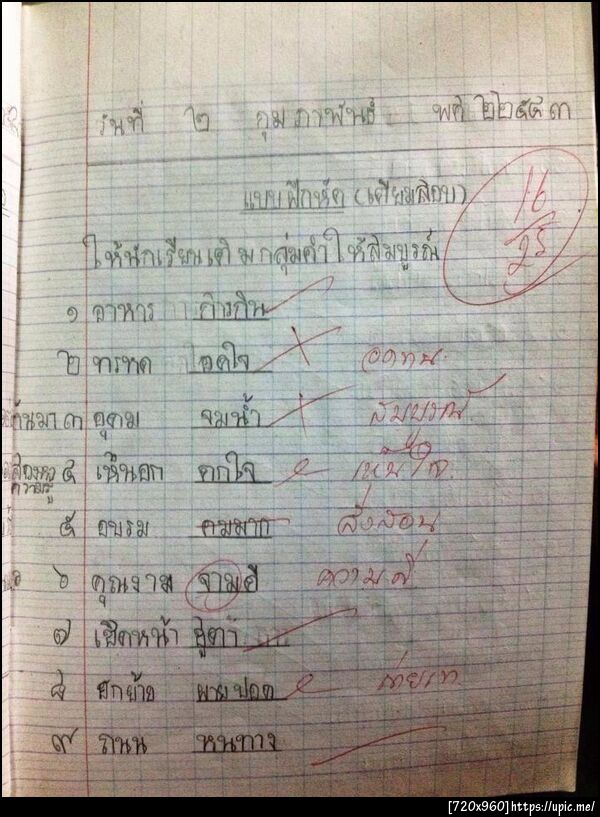 วันที่ ๒ กุมภาพันธ์ พศ ๒๒๕๕๓
แบบฝึกหัด (เตรียมสอบ)
16/25
ให้นักเรียนเติมกลุ่มคำให้สมบูรณ์
๑ อาหาร การกิน
๒ ทรหด อดใจ อดทน
๓ อุดม จมน้ำ สมบูรณ์
๔ เห็นอก ตกใจ เห็นใจ
๕ อบรม คมมาก สั่งสอน
๖ คุณงาม จามดี ความดี
๗ เชิดหน้า ชูตา
๘ ยักย้าย
๙ ถนน หนทาง
[720x960]https://upic.me/